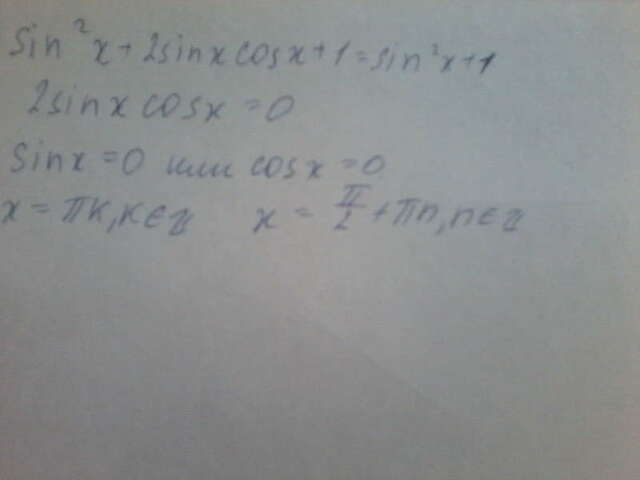 sin²x+2sinxcosx+1=sin²x+1
2sinx cosx=0
sinx=0 или cosx=0
x=πk,k∈z x=π/2+πn,n∈z